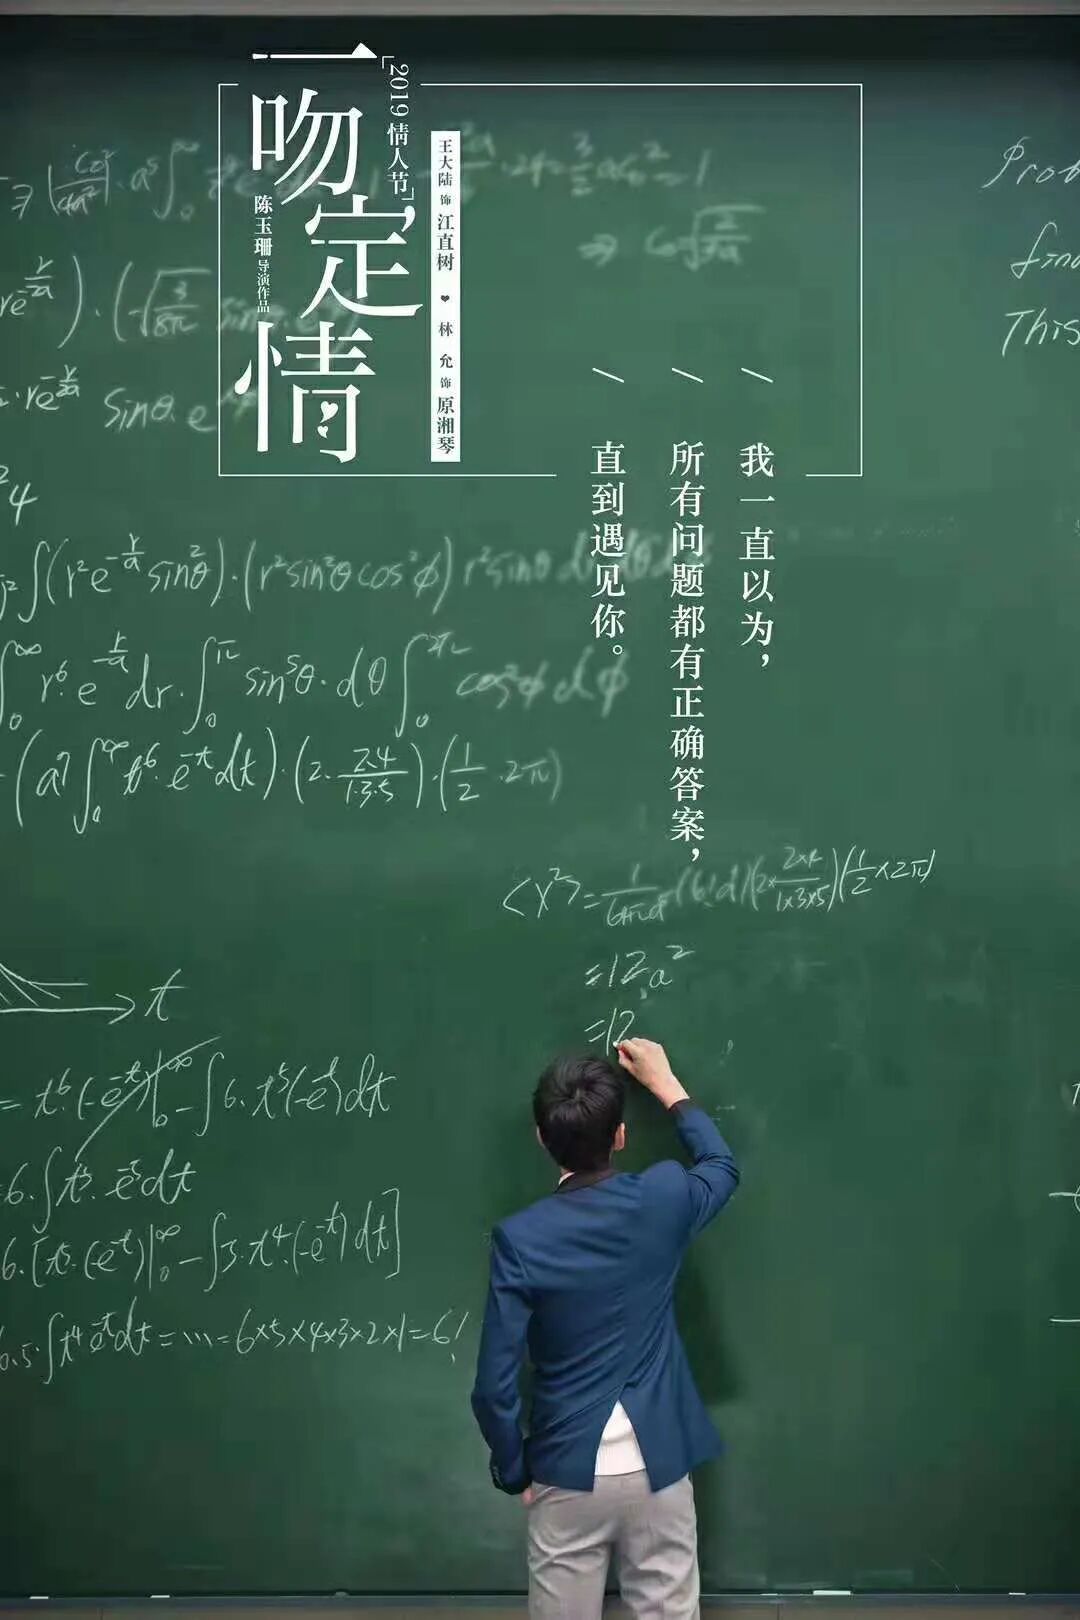 一吻定情
「2019 情人节」
陈玉珊 导演作品
王大陆 饰 江直树 ♥ 林 允 饰 原湘琴
我一直以为，
所有问题都有正确答案，
直到遇见你。
Prob
find
This
sinθ·e
∫(r²e^{-r/a} sin²θ)·(r²sin²θcos²φ) r²sinθ
∫₀^∞ r⁶·e^{-r/a}dr·∫₀^π sin⁵θ·dθ∫₀^{2π} cos²φdφ
(a⁷∫₀^∞ t⁶·e^{-t}dt)·(2·\frac{2·4}{1·3·5})·(\frac{1}{2}·2π)
<x²>=
(\frac{1}{2}×2π)
=12a²
=12
t
=t⁶·(-e^{-t})|₀^∞-∫6·t⁵(-e^{-t})dt
6·∫t⁵·e^{-t}dt
6·[t⁵·(-e^{-t})|₀^∞-∫5·t⁴·(-e^{-t})dt]
6·5·∫t⁴e^{-t}dt=⋯=6×5×4×3×2×1=6!